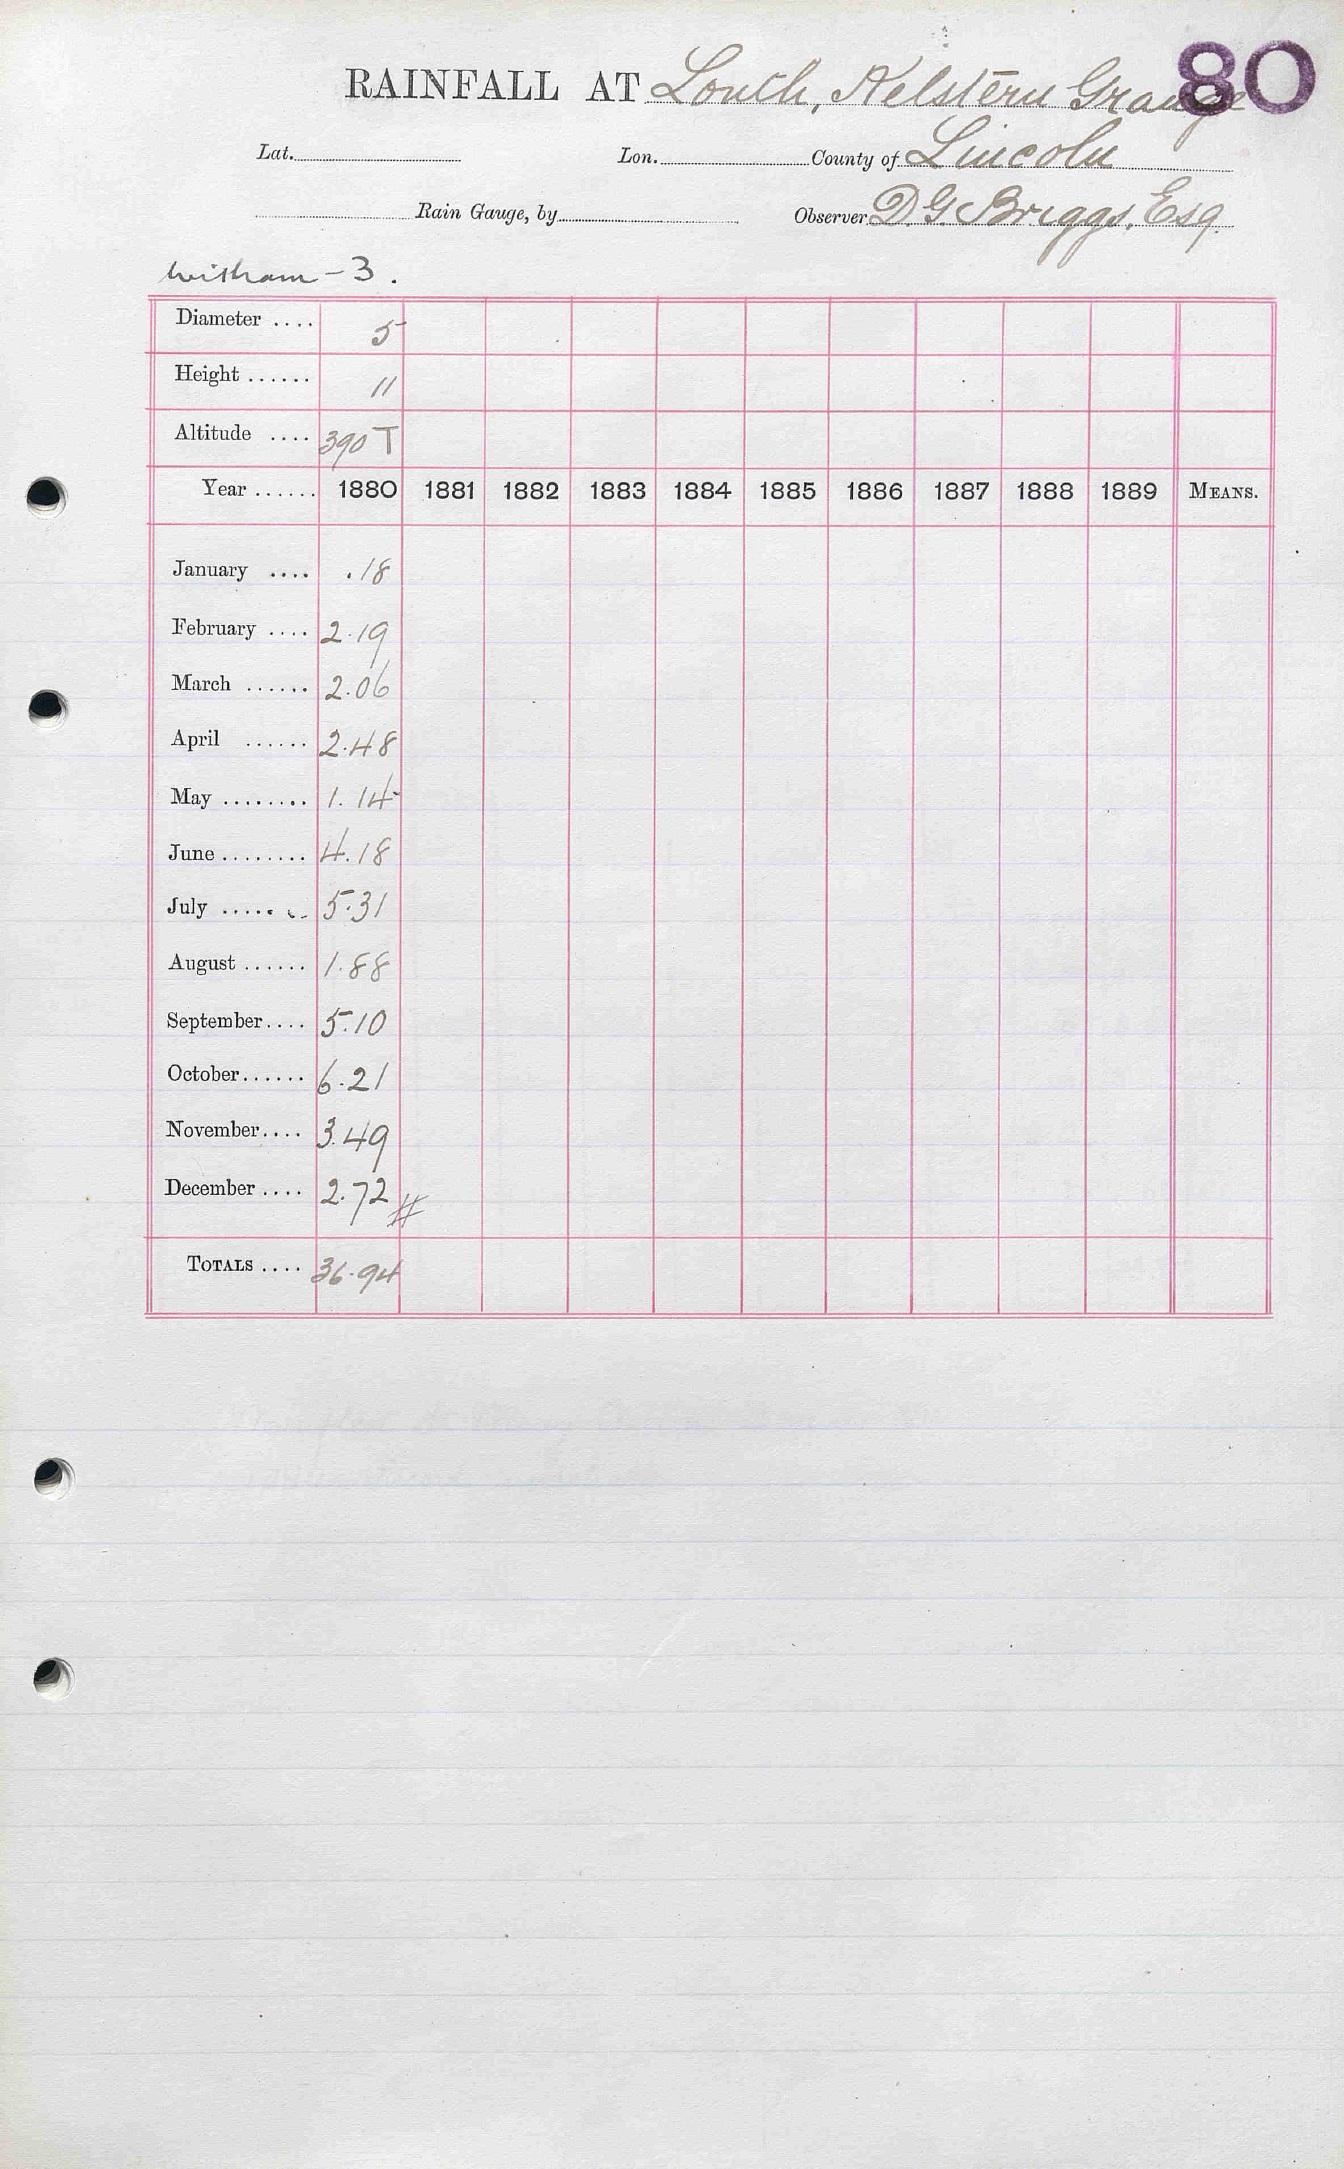 80
RAINFALL AT Louth, Kelstern Grange
Lat. Lon. County of Lincoln
Rain Gauge, by Observer D. G. Briggs, Esq.
Witham - 3.
Diameter .... 5
Height ...... 11
Altitude .... 390 T
Year ...... 1880 1881 1882 1883 1884 1885 1886 1887 1888 1889 MEANS.
January .... .18
February .... 2.19
March ...... 2.06
April ...... 2.48
May ........ 1.14
June ........ 4.18
July ........ 5.31
August ...... 1.88
September .... 5.10
October ...... 6.21
November .... 3.49
December .... 2.72 #
TOTALS .... 36.94